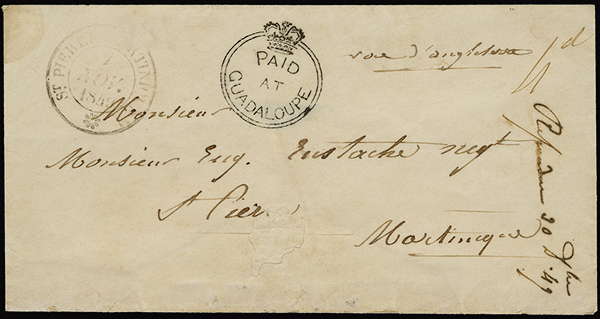 ST PIERRE MARTINIQUE
1
NOV.
184
PAID
AT
GUADALOUPE
voie d'angleterre
Monsieur
Monsieur Eug. Eustache negt
St Pierre
Martinique
Répondu 20 Xbre 49